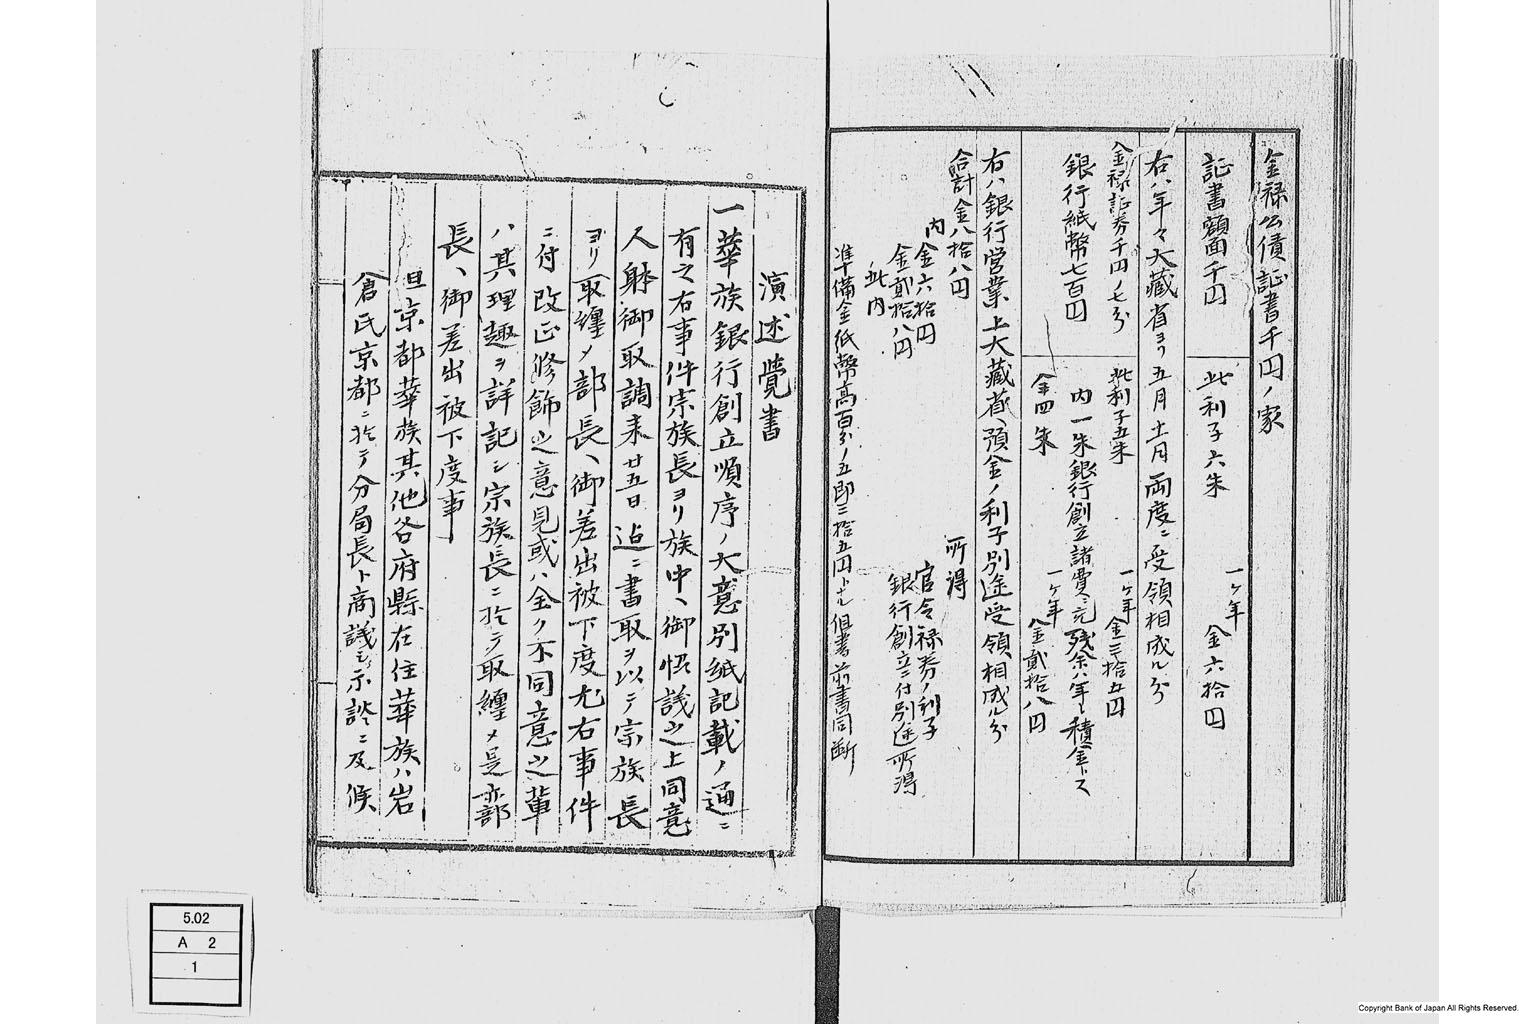 金禄公債証書千円ノ家
証書額面千円 此利子六朱 一ヶ年 金六拾円
右ハ年々大蔵省ヨリ五月十一月両度ニ受領相成ル分
金禄証券千円ノ七分 此利子五朱 一ヶ年 金三拾五円
銀行紙幣七百円 内一朱銀行創立諸費ニ充残余ハ年々積金トス
金四朱 一ヶ年 金貳拾八円
右ハ銀行営業上大蔵省ヘ預金ノ利子別途受領相成ル分
合計金八拾八円 所得
内金六拾円 官令禄券ノ利子
金貳拾八円 銀行創立ニ付別途所得
此内
準備金紙幣高百分ノ五即三拾五円トナル但書前書同断
演述覚書
一華族銀行創立順序ノ大意別紙記載ノ通ニ
有之右事件宗族長ヨリ族中ヘ御協議之上同意
人躰御取調来廿五日迠ニ書取ヲ以テ宗族長
ヨリ取纏メ部長ヘ御差出被下度尤右事件
ニ付改正修飾之意見或ハ全ク不同意之輩
ハ其理趣ヲ詳記シ宗族長ニ於テ取纏メ是亦部
長ヘ御差出被下度事
但京都華族其他各府縣在住華族ハ岩
倉氏京都ニ於テ分局長ト商議シ示談ニ及候
5.02
A 2
1
Copyright Bank of Japan All Rights Reserved.